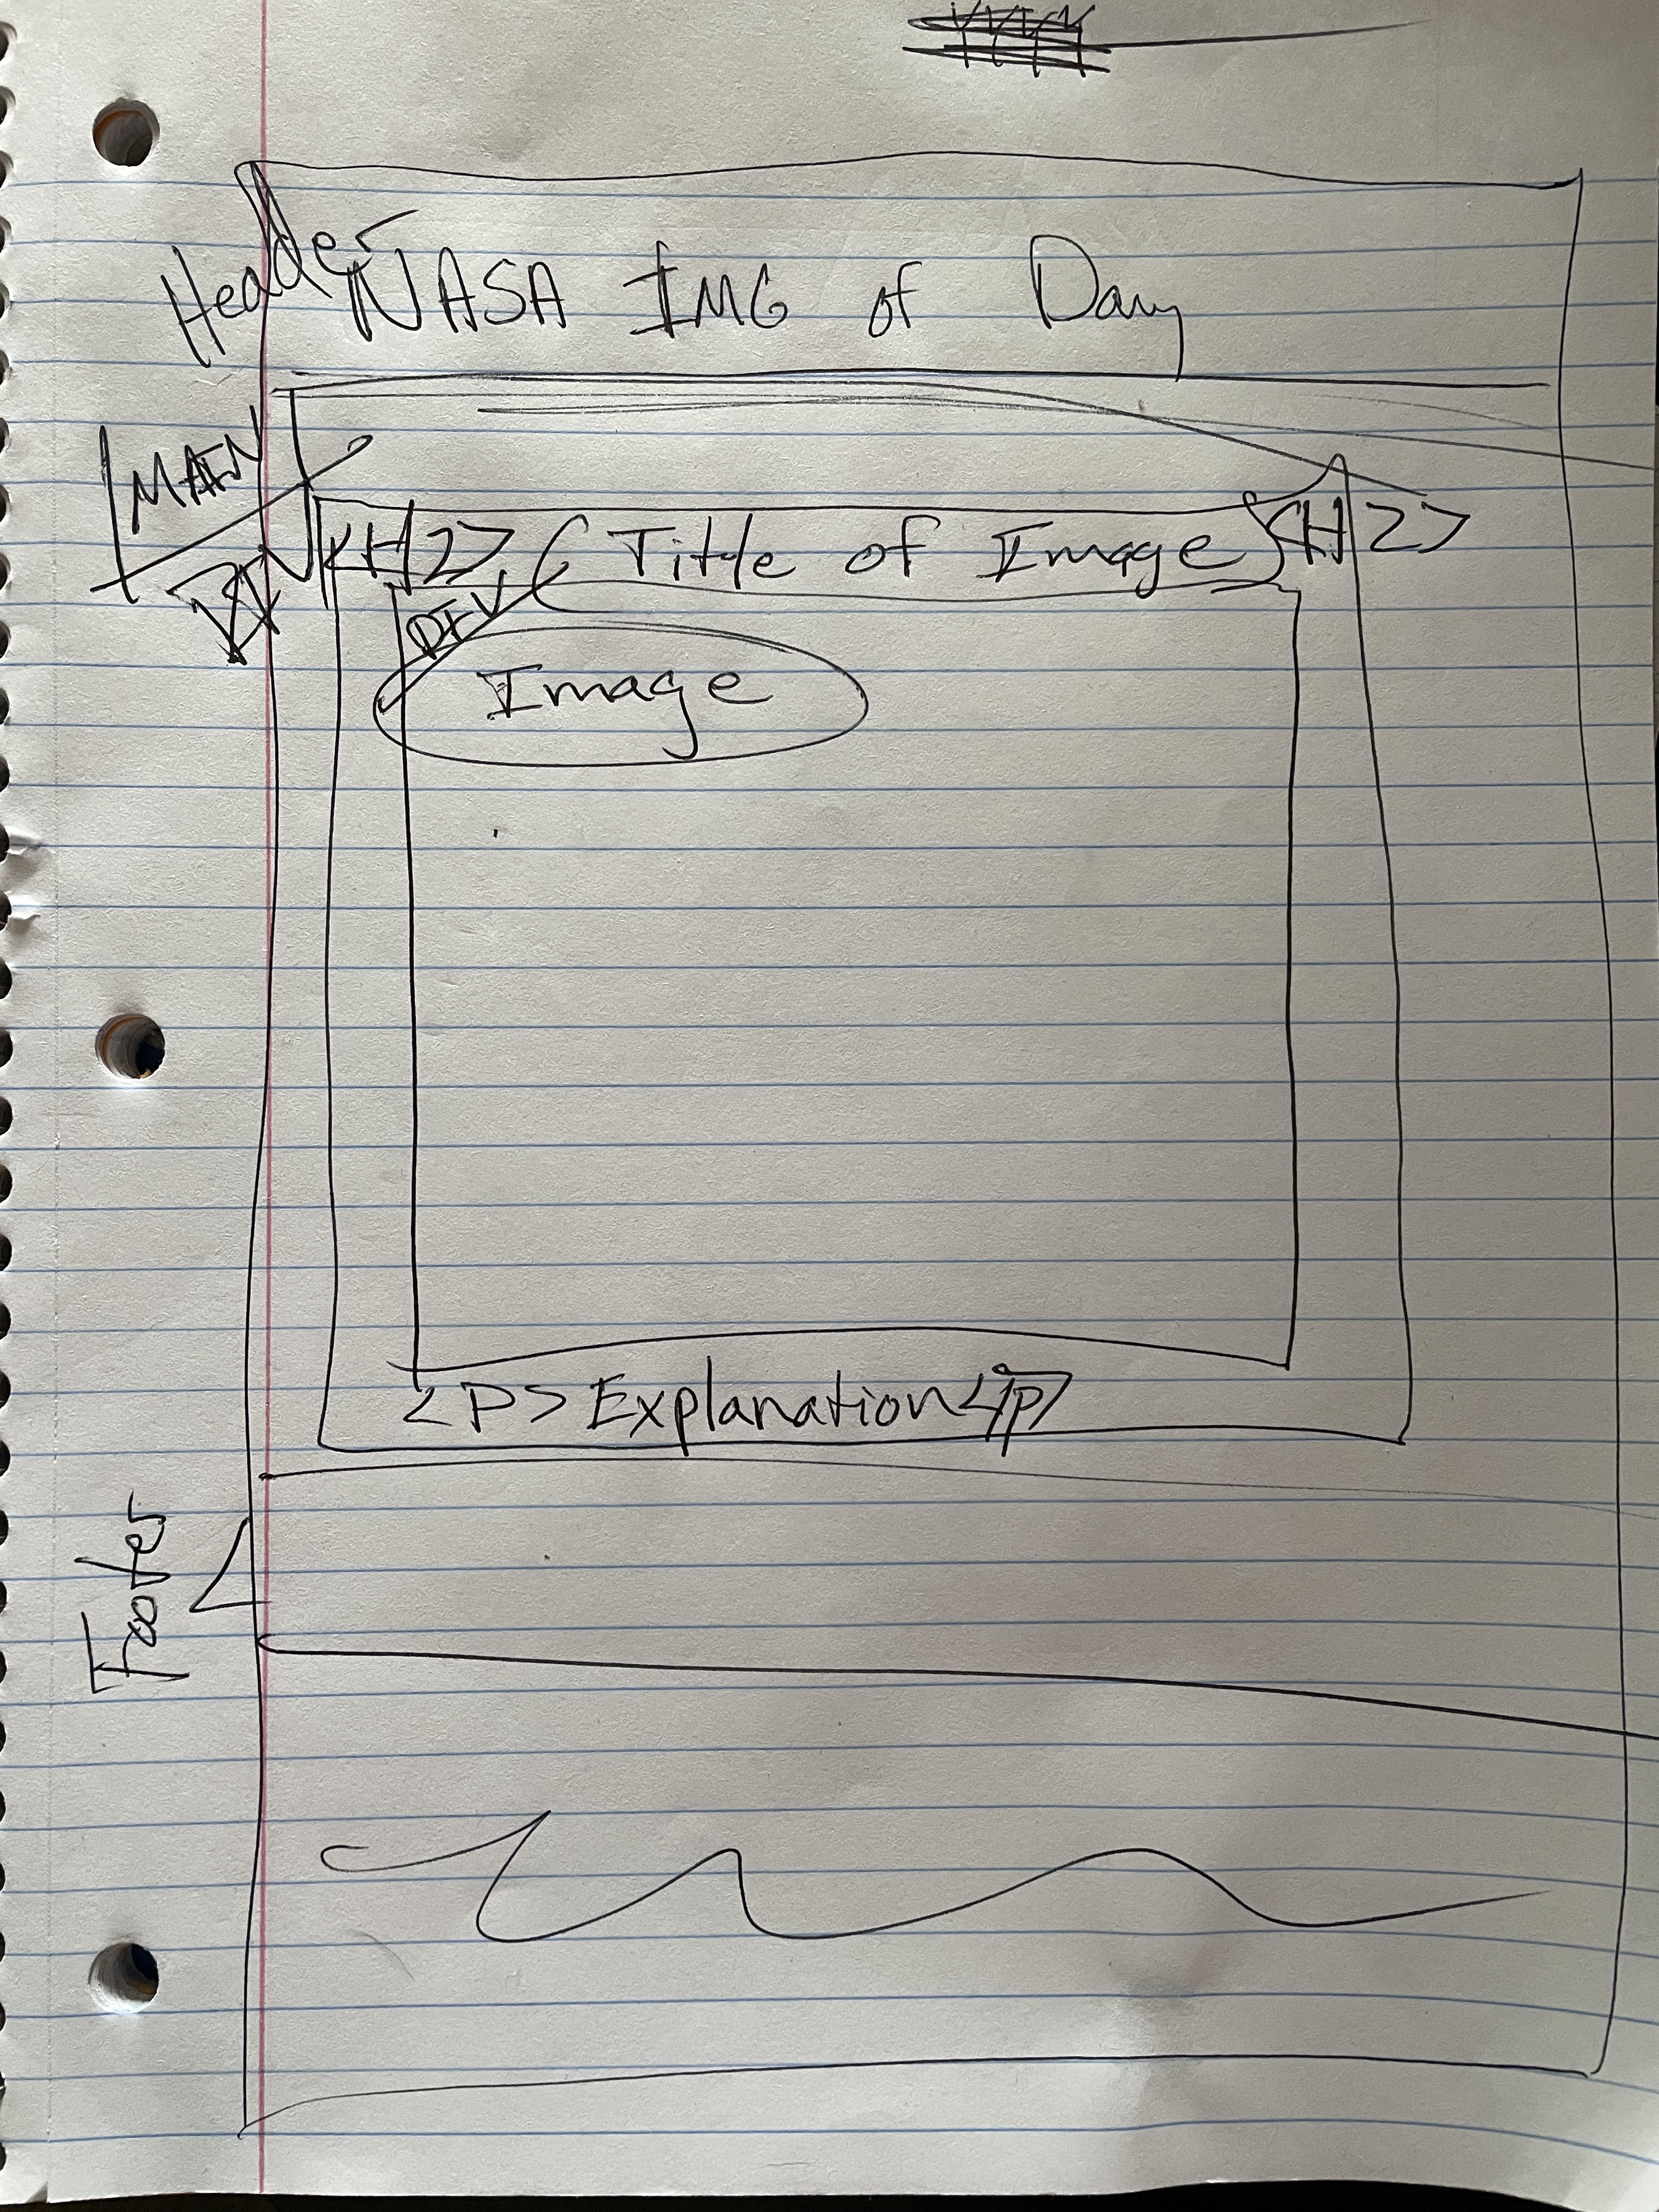 Header
NASA IMG of Day
MAIN
<H2> (Title of Image) <H2>
DIV
Image
<P> Explanation </P>
Footer